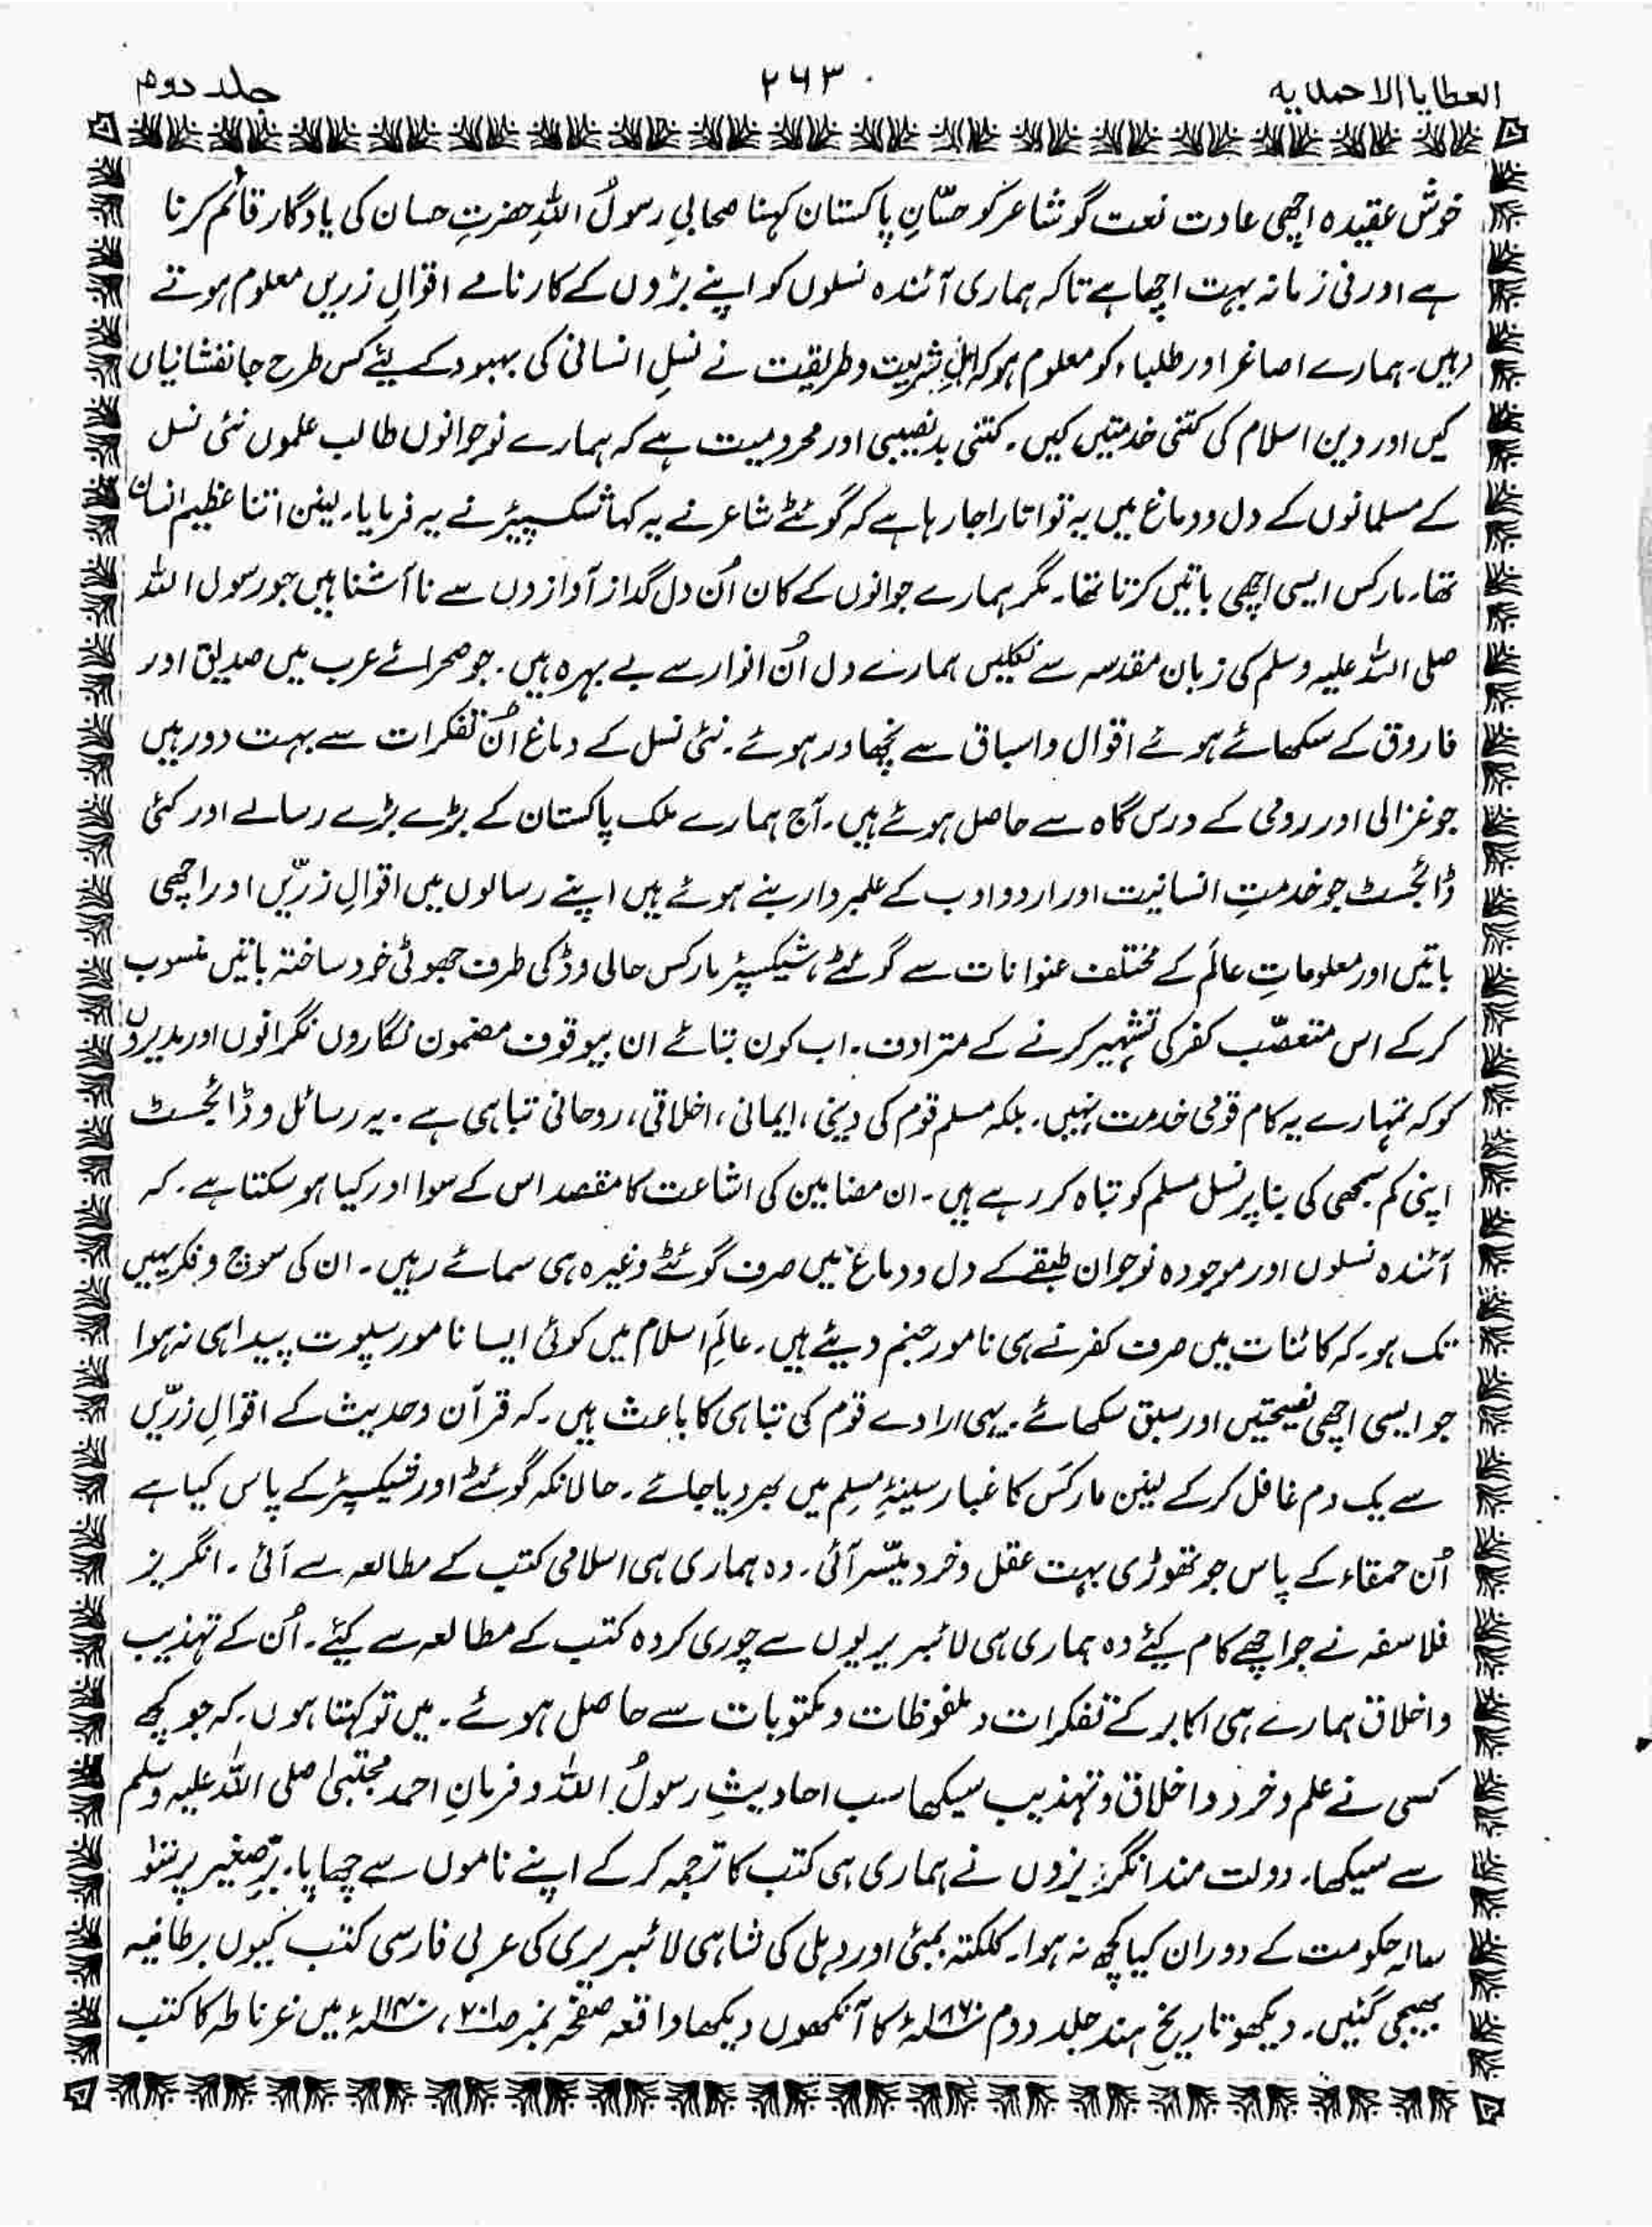 العطایا الاحمدیه ۲۶۳ جلد دوم
خوش عقیدہ اچھی عادت نعت گو شاعر کو حسّانِ پاکستان کہنا صحابیِ رسولُ اللہِ حضرتِ حسان کی یادگار قائم کرنا
ہے اور فی زمانہ بہت اچھا ہے تاکہ ہماری آئندہ نسلوں کو اپنے بڑوں کے کارنامے اقوالِ زریں معلوم ہوتے
رہیں۔ ہمارے اصاغر اور طلباء کو معلوم ہو کہ اہلِ شریعت و طریقت نے نسلِ انسانی کی بہبود کے لیئے کس طرح جانفشانیاں
کیں اور دین اسلام کی کتنی خدمتیں کیں۔ کتنی بدنصیبی اور محرومیت ہے کہ ہمارے نوجوانوں طالب علموں نئی نسل
کے مسلمانوں کے دل و دماغ میں یہ تو اتارا جا رہا ہے کہ گوئٹے شاعر نے یہ کہا شکسپیئر نے یہ فرمایا۔ لینن اتنا عظیم انسان
تھا۔ مارکس ایسی اچھی باتیں کرتا تھا۔ مگر ہمارے جوانوں کے کان اُن دل گداز آوازوں سے ناآشنا ہیں جو رسول اللہ
صلی اللہ علیہ وسلم کی زبان مقدسہ سے نکلیں ہمارے دل اُن انوار سے بے بہرہ ہیں۔ جو صحرائے عرب میں صدیق اور
فاروق کے سکھائے ہوئے اقوال و اسباق سے نچھاور ہوئے۔ نئی نسل کے دماغ اُن تفکرات سے بہت دور ہیں
جو غزالی اور رومی کے درس گاہ سے حاصل ہوئے ہیں۔ آج ہمارے ملک پاکستان کے بڑے بڑے رسالے اور کئی
ڈائجسٹ جو خدمتِ انسانیت اور اردو ادب کے علمبردار بنے ہوئے ہیں اپنے رسالوں میں اقوالِ زرّیں اور اچھی
باتیں اور معلوماتِ عالَم کے مختلف عنوانات سے گوئٹے، شیکسپئر مارکس حالی وڈ کی طرف جھوٹی خود ساختہ باتیں منسوب
کر کے اس متعصّب کفر کی تشہیر کرنے کے مترادف۔ اب کون بتائے ان بیوقوف مضمون نگاروں نگرانوں اور مدیروں
کو کہ تمہارے یہ کام قومی خدمت نہیں۔ بلکہ مسلم قوم کی دینی، ایمانی، اخلاقی، روحانی تباہی ہے۔ یہ رسائل و ڈائجسٹ
اپنی کم سمجھی کی بنا پر نسل مسلم کو تباہ کر رہے ہیں۔ ان مضامین کی اشاعت کا مقصد اس کے سوا اور کیا ہو سکتا ہے۔ کہ
آئندہ نسلوں اور موجودہ نوجوان طبقے کے دل و دماغ میں صرف گوئٹے وغیرہ ہی سمائے رہیں۔ ان کی سوچ و فکر یہیں
تک ہو۔ کہ کائنات میں صرف کفر نے ہی نامور جنم دیئے ہیں۔ عالَمِ اسلام میں کوئی ایسا نامور سپوت پیدا ہی نہ ہوا
جو ایسی اچھی نصیحتیں اور سبق سکھائے۔ یہی ارادے قوم کی تباہی کا باعث ہیں۔ کہ قرآن و حدیث کے اقوالِ زرّیں
سے یک دم غافل کر کے لینن مارکَس کا غبار سینۂِ مسلِم میں بھر دیا جائے۔ حالانکہ گوئٹے اور شیکسپئر کے پاس کیا ہے
اُن حمقاء کے پاس جو تھوڑی بہت عقل و خرد میسّر آئی۔ وہ ہماری ہی اسلامی کتب کے مطالعہ سے آئی۔ انگریز
فلاسفہ نے جو اچھے کام کیئے وہ ہماری ہی لائبریریوں سے چوری کردہ کتب کے مطالعہ سے کیئے۔ اُن کے تہذیب
و اخلاق ہمارے ہی اکابر کے تفکرات و ملفوظات و مکتوبات سے حاصل ہوئے۔ میں تو کہتا ہوں۔ کہ جو کچھ
کسی نے علم و خرد و اخلاق و تہذیب سیکھا سب احادیثِ رسولُ اللہ و فرمانِ احمد مجتبیٰ صلی اللہ علیہ وسلم
سے سیکھا۔ دولت مند انگریزوں نے ہماری ہی کتب کا ترجمہ کر کے اپنے ناموں سے چھاپا۔ برِصغیر پر سَو
سالہ حکومت کے دوران کیا کچھ نہ ہوا۔ کلکتہ بمبئی اور دہلی کی شاہی لائبریری کی عربی فارسی کتب کیوں برطانیہ
بھیجی گئیں۔ دیکھو تاریخِ ہند جلد دوم ۱۸۷۰ء کا آنکھوں دیکھا واقعہ صفحہ نمبر صـ۷۰۱، ۱۱۴۰ء میں غرناطہ کا کتب